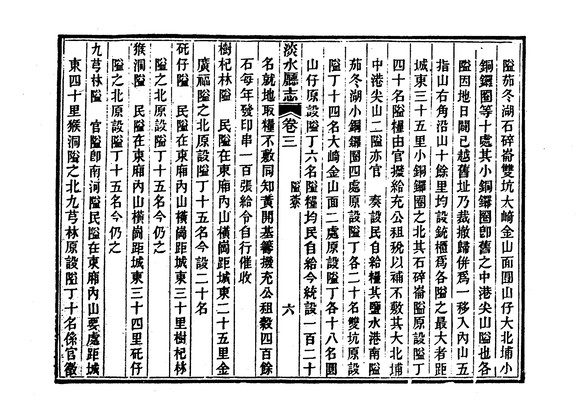 隘茄冬湖石碎崙雙坑大崎金山面圓山仔大北埔小
銅鑼圈等十處其小銅鑼圈卽舊之中港尖山隘也各
隘因地日闢已越舊址乃裁撤歸併爲一移入內山五
指山右角沿山十餘里均設銃櫃爲各隘之最大者距
城東三十五里小銅鑼圈之北其石碎崙隘原設隘丁
四十名隘糧由官撥給充公租稅以補不敷其大北埔
中港尖山二隘亦官　奏設民自給糧其鹽水港南隘
茄冬湖小銅鑼圈四處原設隘丁各二十名雙坑原設
隘丁十四名大崎金山面二處原設隘丁各十八名圓
山仔原設隘丁六名隘糧均民自給今統設一百二十
淡水廳志　卷三　隘寮　六
名就地取糧不敷同知黃開基籌撥充公租穀四百餘
石每年發印串一百張給令自行催收
樹杞林隘　民隘在東廂內山橫崗距城東二十五里金
廣福隘之北原設隘丁十五名今設二十名
矺仔隘　民隘在東廂內山橫崗距城東三十里樹杞林
隘之北原設隘丁十五名今仍之
猴洞隘　民隘在東廂內山橫崗距城東三十四里矺仔
隘之北原設隘丁十五名今仍之
九芎林隘　官隘卽南河隘民隘在東廂內山要處距城
東四十里猴洞隘之北九芎林原設隘丁十名係官徵